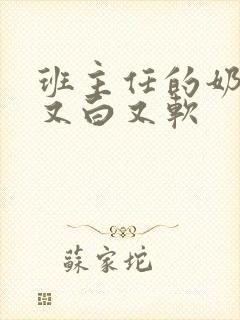 班主任的奶
又白又軟
蘇家坨